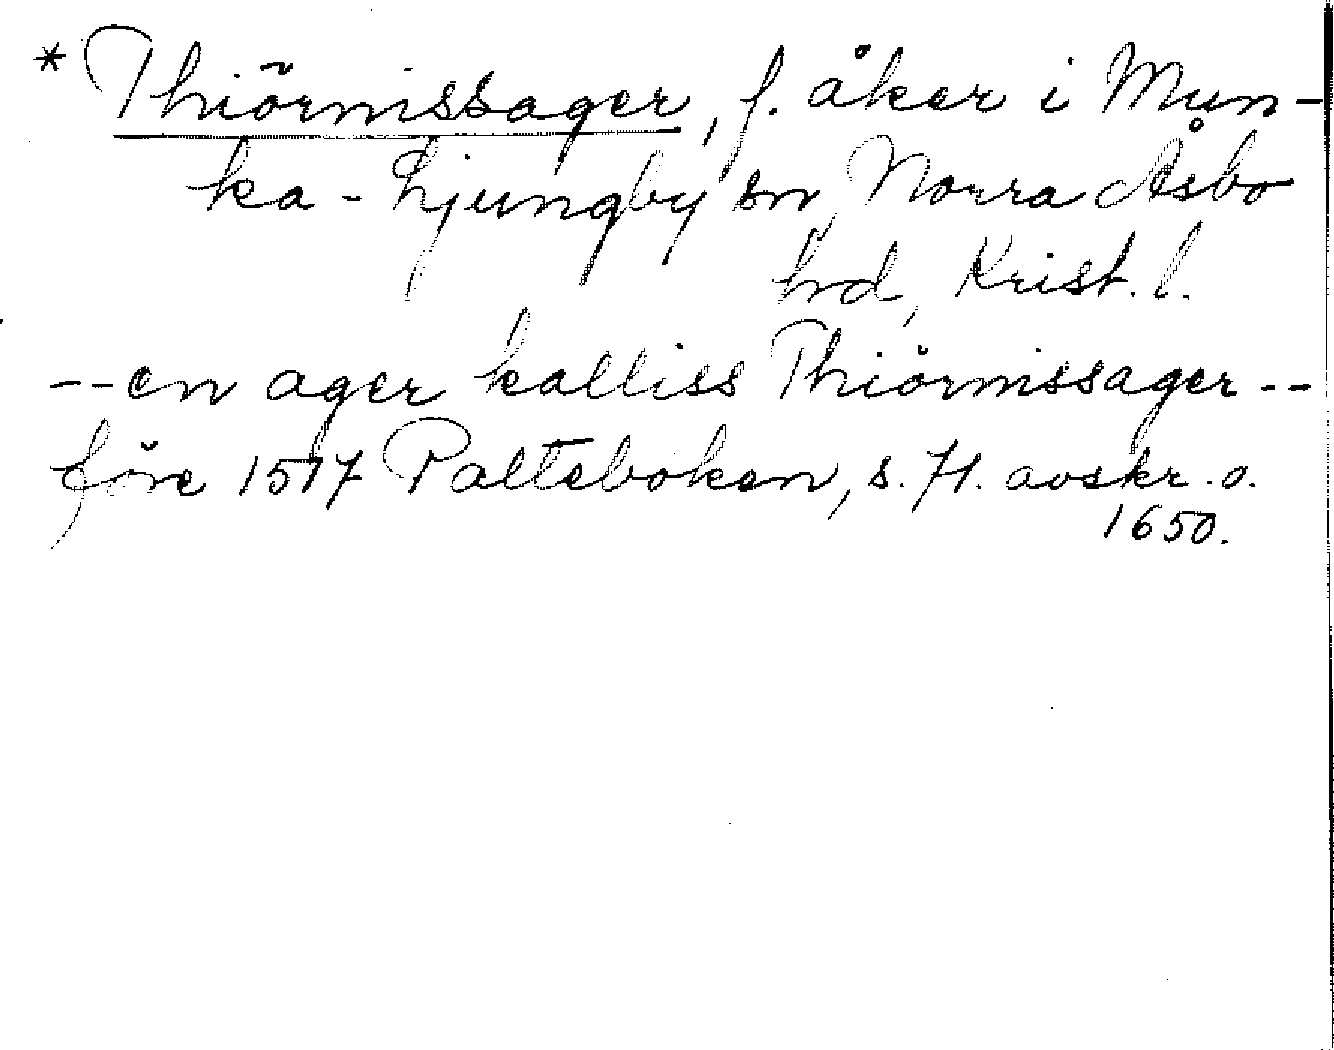 * Thiörnissager, f. åker i Mun-
ka-Ljungby sn, Norra Åsbo
hd, Krist. l.
--en ager kalliss Thiörnissager--
före 1517 Palteboken, s. 71. avskr. o.
1650.